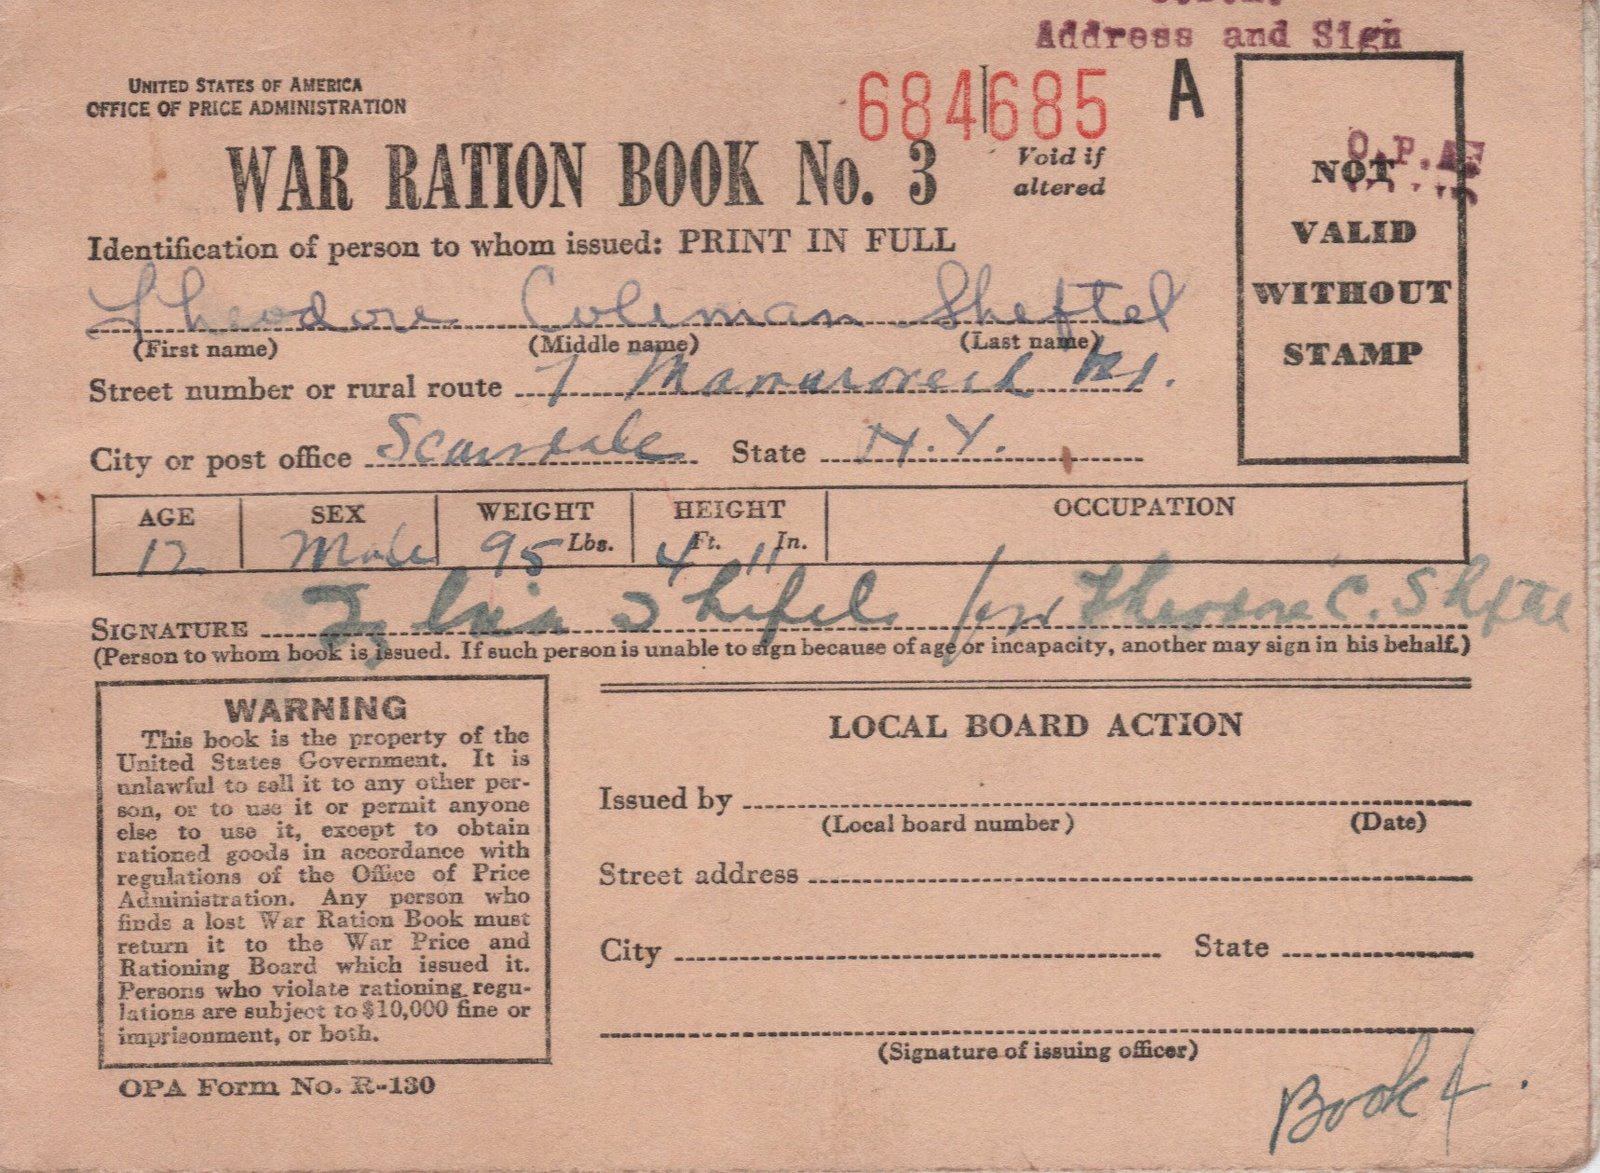 Address and Sign
UNITED STATES OF AMERICA
OFFICE OF PRICE ADMINISTRATION
684685 A
WAR RATION BOOK No. 3
Void if
altered
O.P.A
NOT
VALID
WITHOUT
STAMP
Identification of person to whom issued: PRINT IN FULL
Theodore Coleman Sheftel
(First name) (Middle name) (Last name)
Street number or rural route 7 Mamaroneck Rd.
City or post office Scarsdale State N.Y.
AGE SEX WEIGHT HEIGHT OCCUPATION
12 Male 95 Lbs. 4 Ft. 11 In.
SIGNATURE Sheftel for Theodore C. Sheftel
(Person to whom book is issued. If such person is unable to sign because of age or incapacity, another may sign in his behalf.)
WARNING
This book is the property of the
United States Government. It is
unlawful to sell it to any other per-
son, or to use it or permit anyone
else to use it, except to obtain
rationed goods in accordance with
regulations of the Office of Price
Administration. Any person who
finds a lost War Ration Book must
return it to the War Price and
Rationing Board which issued it.
Persons who violate rationing regu-
lations are subject to $10,000 fine or
imprisonment, or both.
OPA Form No. R-130
LOCAL BOARD ACTION
Issued by
(Local board number) (Date)
Street address
City State
(Signature of issuing officer)
Book 4